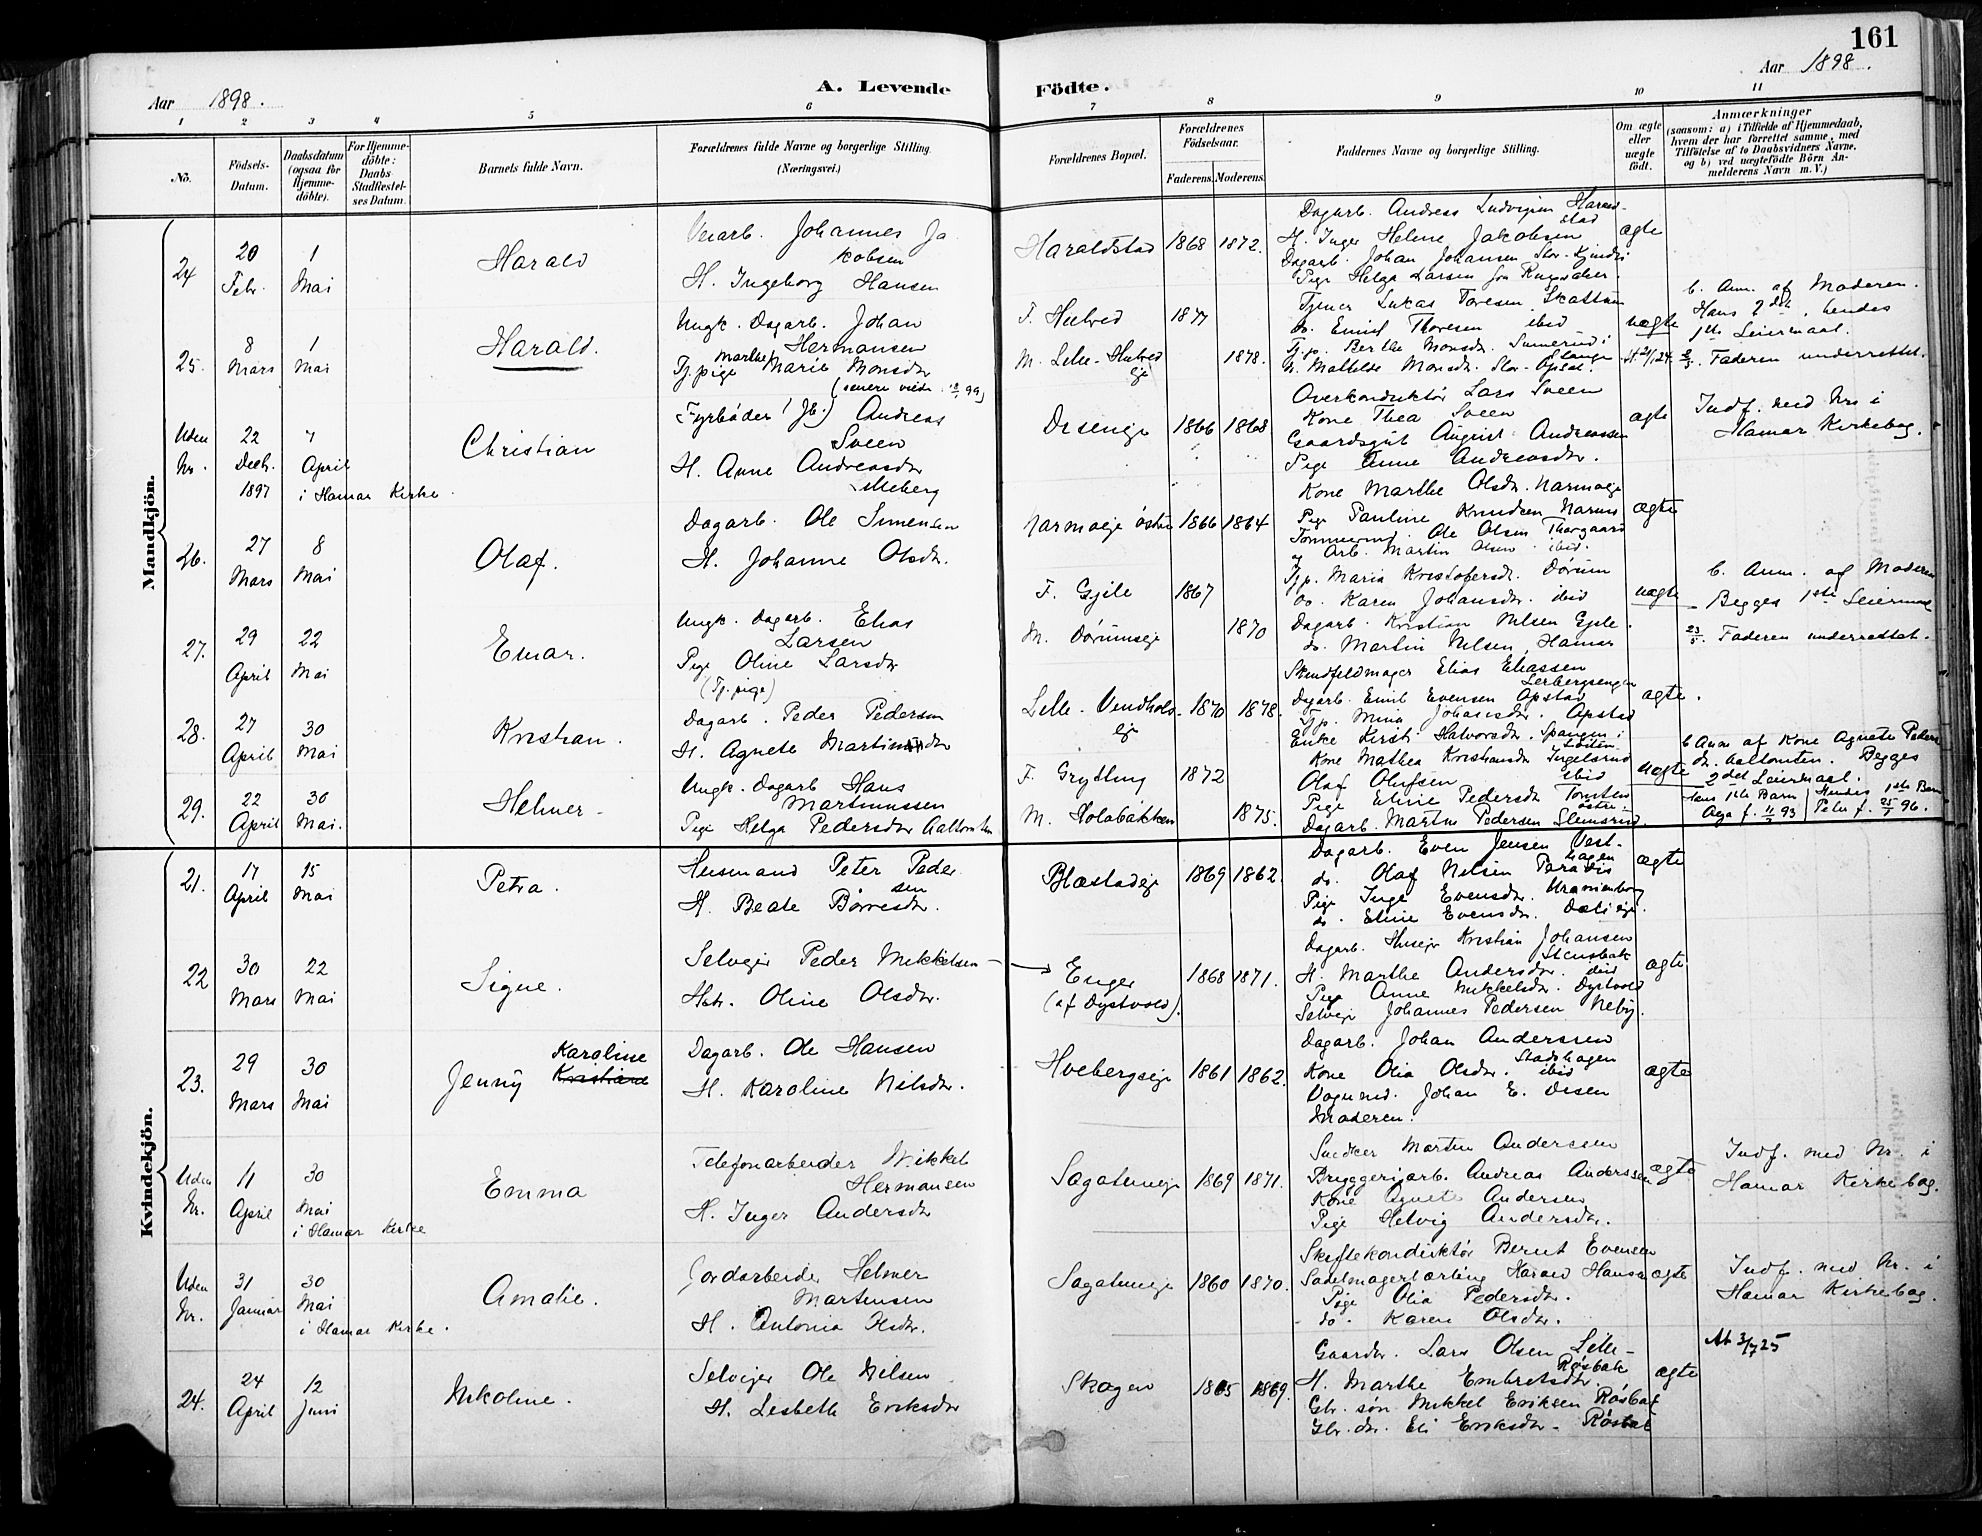 161
Aar 1898.
A. Levende Födte.
Aar 1898.
1 2 3 4 5 6 7 8 9 10 11
No.
Födsels-Datum.
Daabsdatum (ogsaa for Hjemme-döbte).
For Hjemme-döbte: Daabs Stadfæstel-ses Datum.
Barnets fulde Navn.
Forældrenes fulde Navne og borgerlige Stilling. (Næringsvei.)
Forældrenes Bopæl.
Forældrenes Födselsaar.
Faderens. Moderens.
Faddernes Navne og borgerlige Stilling.
Om ægte eller uægte födt.
Anmærkninger
(saasom: a) i Tilfælde af Hjemmedaab, hvem der har forrettet samme, med Tilföielse af to Daabsvidners Navne, og b) ved uægtefödte Börn An-melderens Navn m. V.)
Mandkjön.
24 20 Febr. 1 Mai
Harald
Johannes Jakobsen
H. Ingeborg Hansen
Haraldstad 1868 1872.
Dagarb. Andreas Ludvigsen Haraldstad
H. Inger Helene Jakobsen
Dagarb. Johan Johansen
Pige Helga Larsen
ægte
25. 8 Mars 1 Mai
Harald.
Ungk. Dagarb. Johan Hermansen
Tj.pige Marthe Marie Monsdr
F. Hulved 1877
M. Lille-Hulved eje 1878.
Tjener Lukas Toresen Skattum
do. Emil Thoresen ibid
Tj.p. Berthe Monsdr. Stange
Mathilde Monsdr. Stor-Opsal.
uægte
b. Anm. af Moderen.
Hans 2det, hendes
1ste Leiermaal.
Faderen underrettet.
Uden Nr. 22 Decb. 1897 April i Hamar Kirke.
Christian
Fyrbøder (Jb.) Andreas Sveen
H. Anne Andreasdr Lilleberg
Diseneje 1866 1868
Overkonduktør Lars Sveen
Kone Thea Sveen
Gaardsgut August Andreassen
Pige Anne Andreasdr.
ægte
Indf. med Nr. i
Hamar Kirkebog.
26. 27 Mars 8 Mai
Olaf.
Dagarb. Ole Simensen
H. Johanne Olsdr.
Narmoeje østre 1866 1864
Kone Marthe Olsdr. Narmoeje
Pige Pauline Knudsen Narmo
Tømmermd. Ole Olsen Thorgaard
og Arb. Martin Olsen ibid.
ægte
27. 29 April 22 Mai
Einar.
Ungk. Dagarb. Elias Larsen
Pige Oline Larsdr
(Tj.pige)
F. Gjile 1867
M. Dørumseje 1870
Tj.p. Maria Kristofersdr. Dørum
do. Karen Johansdr. ibid
Dagarb. Kristian Nilsen Gjile.
do. Martin Nilsen, Hamar
uægte
b. Anm. af Moderen
Begges 1ste Leiermaal
23/5. Faderen underrettet.
28. 27 April 30 Mai
Kristian.
Dagarb. Peder Pedersen
H. Agnete Martinsdr
Lille-Vendkvold-eje 1870 1878.
Skindfeldmager Elias Eliassen Lerbergsengen
Dagarb. Emil Evensen Opstad
Tjp. Mina Johansdr. Opstad
Enke Kirsti Halvorsdr. Spangen i Løiten
ægte.
29. 22 April 30 Mai.
Helmer
Ungk. Dagarb Hans Martinussen
Pige Helga Pedersdr
F. Grytting 1872
M. Holobakken 1875.
Kone Mathea Kristiansdr Ingelsrud
Olaf Olufsen ibid
Pige Eline Pedersdr Tomten østre.
Dagarb. Martin Pedersen Slemsrud.
uægte
b Anm af Kone Agnete Peders
dr. Begges
2det Leiermaal.
Hans 1ste Barn | Hendes 1ste Barn
Aga f. 93 | Peter f. 96.
Kvindekjön.
21. 17 April 15 Mai
Petra.
Husmand Peter Pedersen
H. Beate Børresdr.
Blæstadeje 1869 1862.
Dagarb. Even Jensen Vesthagen
do. Olaf Nilsen Paradis
Pige Inga Evensdr. Uranienborg
do. Eline Evensdr. Dæli eje.
ægte
22 30 Mars 22 Mai
Signe.
Selvejer Peder Mikkelsen
Hstr. Oline Olsdr.
Enger (af Dystvold). 1868 1871.
Dagarb. Husejer Kristian Johansen Stensbak
H. Marthe Andersdr. ibid
Pige Anne Mikkelsdr. Dystvold
Selvejer Johannes Pedersen Neby.
ægte
23. 29 Mars 30 Mai
Jenny Karoline Kristiane
Dagarb. Ole Hansen
H. Karoline Nilsdr.
Hvebergseje 1861 1862.
Dagarb. Johan Anderssen Stadshagen
Kone Olia Olsdr. ibid
Vognmd. Johan E. Disen
Moderen.
ægte
Uden Nr. 11 April 30 Mai i Hamar Kirke
Emma
Telefonarbeider Mikkel Hermansen
H. Inger Andersdr
Sagatuneje 1869 1871.
Snedker Martin Anderssen
Bryggeriarb. Andreas Anderssen
Kone Agnete Andersen
Pige Helvig Andersdr.
ægte
Indf. med Nr. i
Hamar Kirkebog.
Uden Nr. 31 Januar 30 Mai i Hamar Kirke.
Amalie.
Jordarbeider Helmer Martinsen
H. Antonia Olsdr.
Sagatuneje 1860 1870.
Skiftekonduktør Bernt Evensen
Sadelmagerlærling Harald Hansen
Pige Olia Pedersdr.
do. Karen Olsdr.
ægte
Indf. med Nr. i
Hamar Kirkebog.
24. 24 April 12 Juni
Nikoline.
Selvejer Ole Nilsen
H. Lisbeth Eriksdr
Skogen 1865 1869.
Gaardbr. Lars Olsen Lille-Røsbak
H. Marthe Embretsdr.
Gbr. søn Mikkel Eriksen Røsbak
Gbr. dr. Eli Eriksdr. Røsbak
ægte